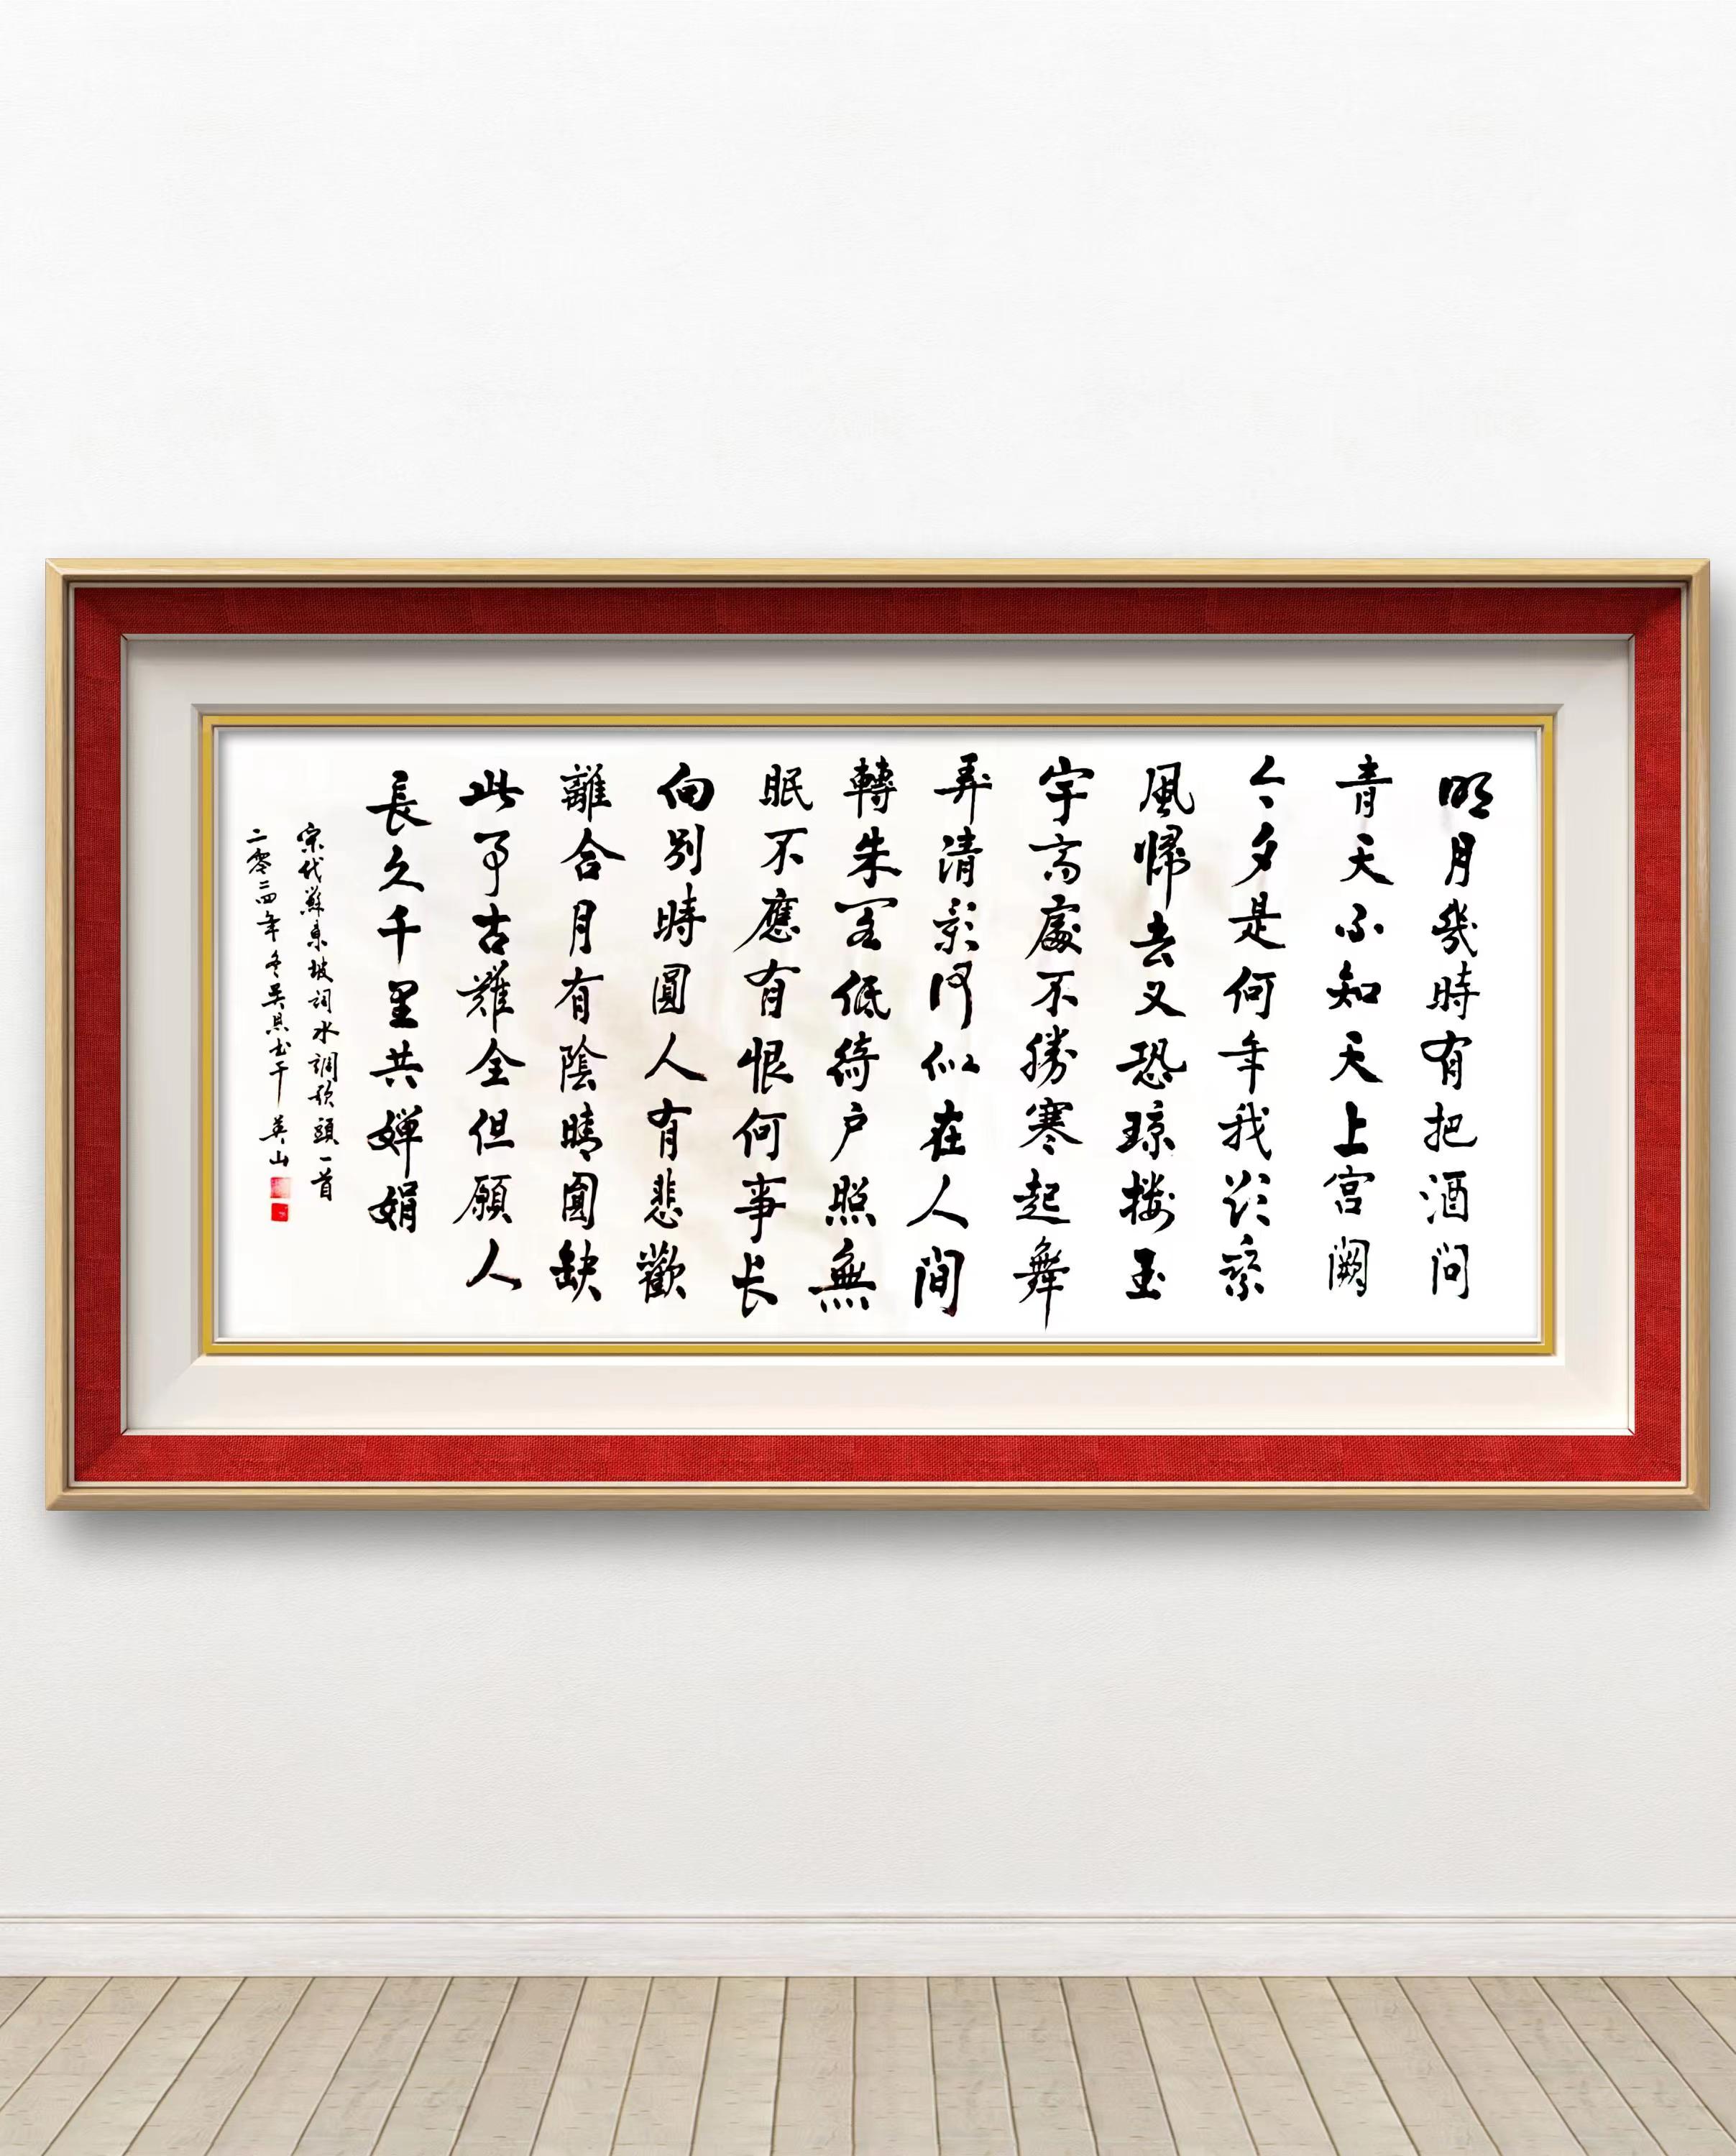 明月幾時有把酒问
青天不知天上宫阙
今夕是何年我欲乘
風歸去又恐琼楼玉
宇高處不勝寒起舞
弄清影何似在人间
轉朱阁低绮户照無
眠不應有恨何事长
向别時圓人有悲歡
離合月有陰晴圓缺
此事古難全但願人
長久千里共婵娟
宋代蘇東坡词水調歌頭一首
二零二四年冬吴具书于英山